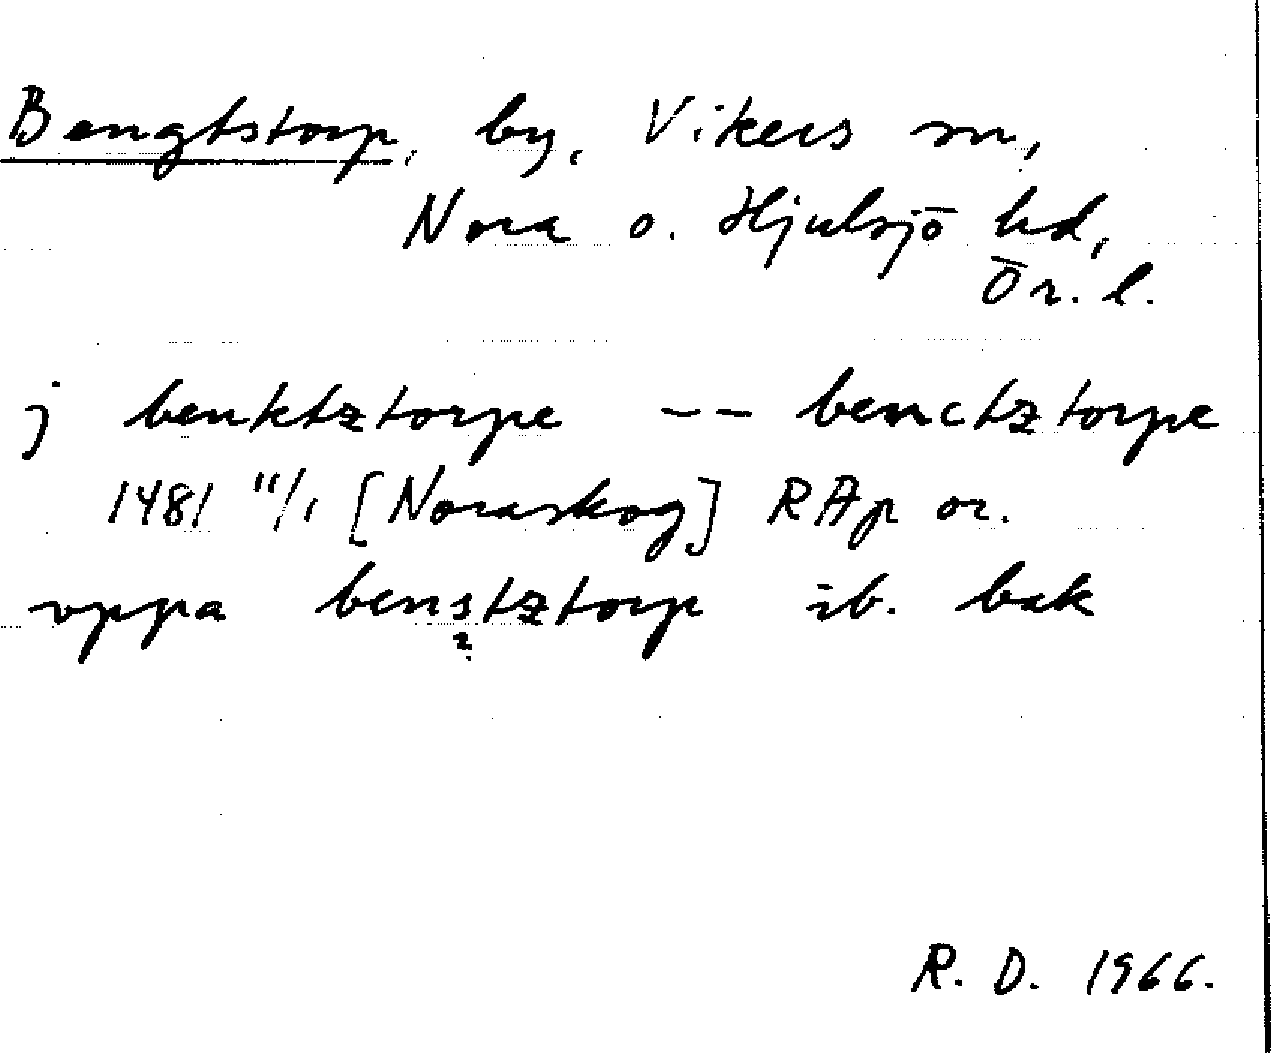 Bengtstorp, by, Vikers sn,
Nora o. Hjulsjö hd,
Ör. l.
j benktztorpe -- benctztorpe
1481 11/1 [Noraskog] RAp or.
vppa benstztorp ib. bak
?
R. D. 1966.